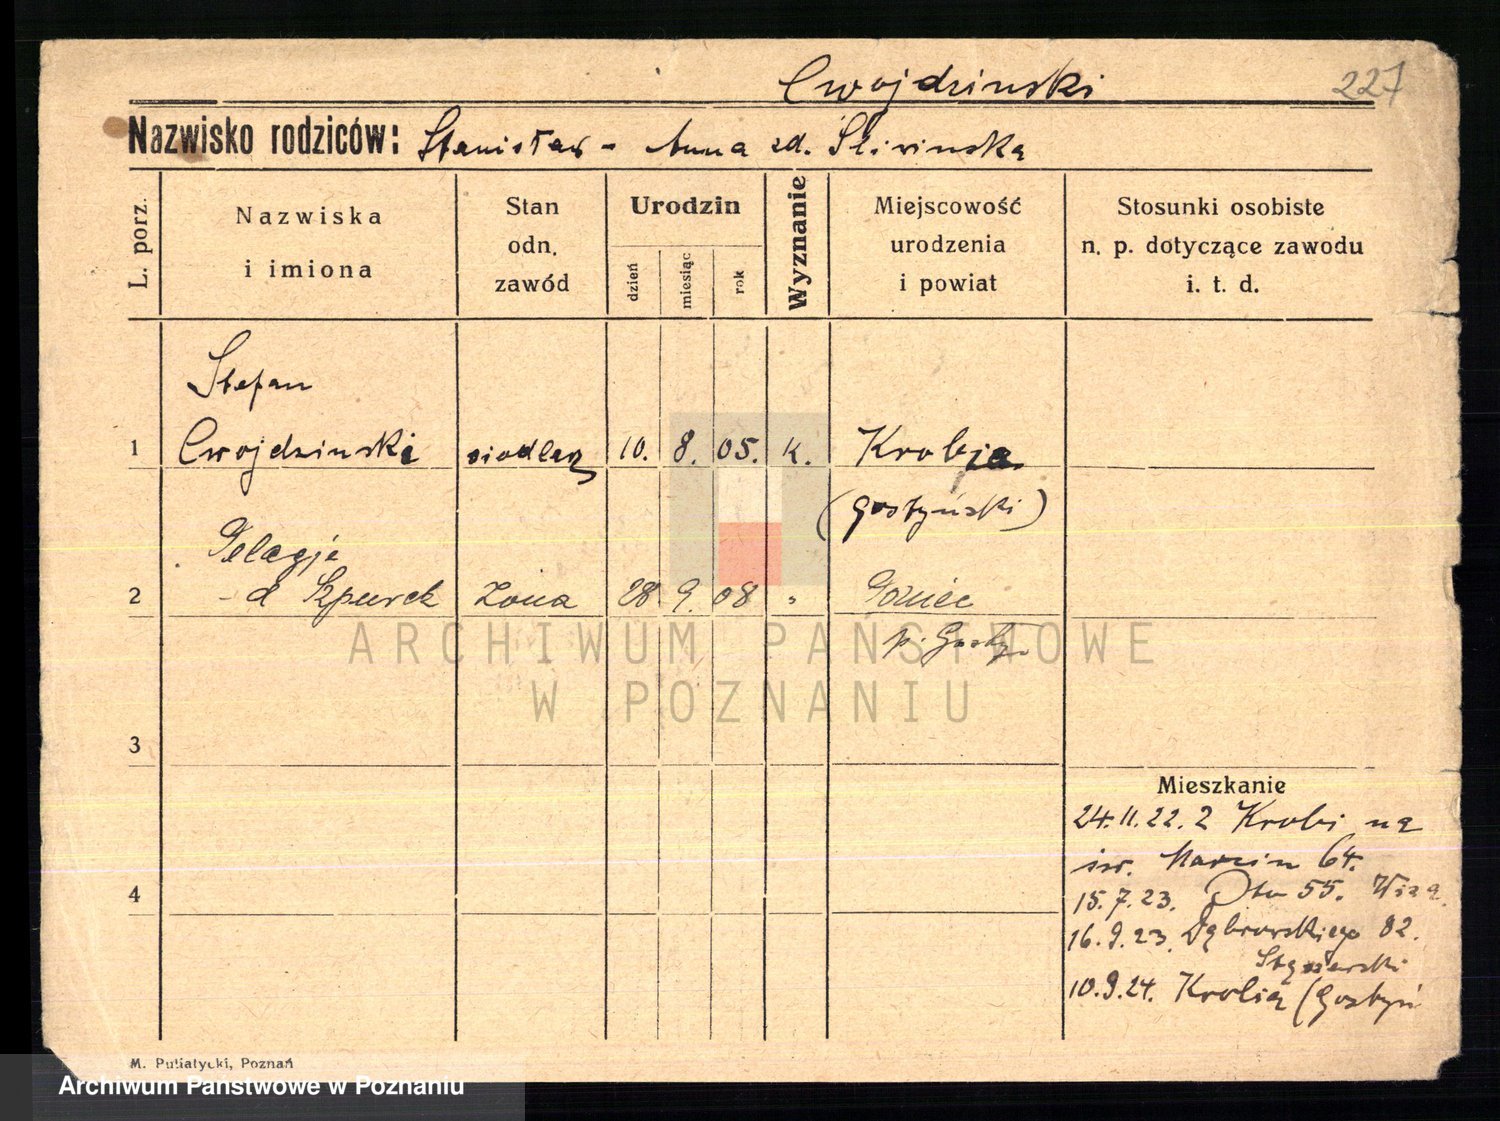 Cwojdzinski 227
Nazwisko rodziców: Stanisław - Anna zd. Śliwinska
L. porz.
Nazwiska
i imiona
Stan
odn.
zawód
Urodzin
dzień
miesiąc
rok
Wyznanie
Miejscowość
urodzenia
i powiat
Stosunki osobiste
n. p. dotyczące zawodu
i. t. d.
Stefan
1 Cwojdzinski siodlarz 10. 8. 05. k. Krobia
(gostyński)
Pelagje
2 - d Szpurek żona 28 9. 08 "
p. Gostyn
3
4
Mieszkanie
24.11.22. z Krobi na
św. Marcin 64.
15.7.23. 55.
16.9.23. Dąbrowskiego 82.
10.9.24. Krobia (Gostyń
ARCHIWUM PAŃSTWOWE
W POZNANIU
M. Putiatycki, Poznań
Archiwum Państwowe w Poznaniu